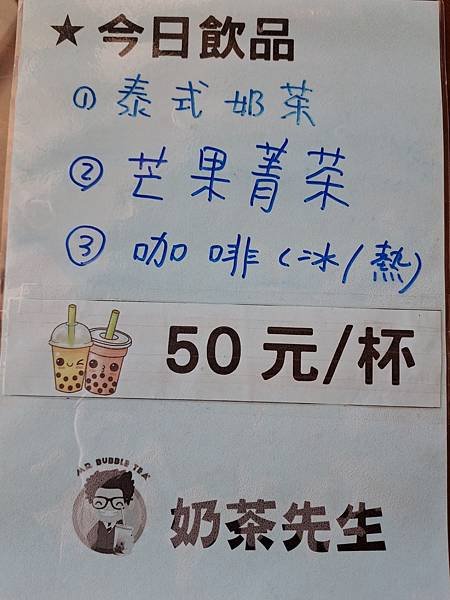 ★今日飲品
① 泰式奶茶
② 芒果菁茶
③ 咖啡(冰/熱)
50元/杯
MR. BUBBLE TEA
奶茶先生